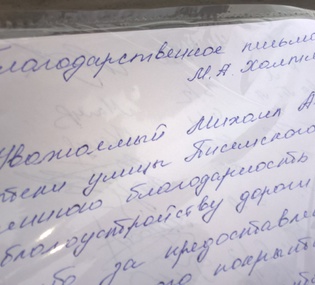 лагодарственное письмо
М. А. Холм
Уважаемый Михаил А
тели улицы Писемского
благодарность
благоустройству дороги
за предоставле
ого покрыти